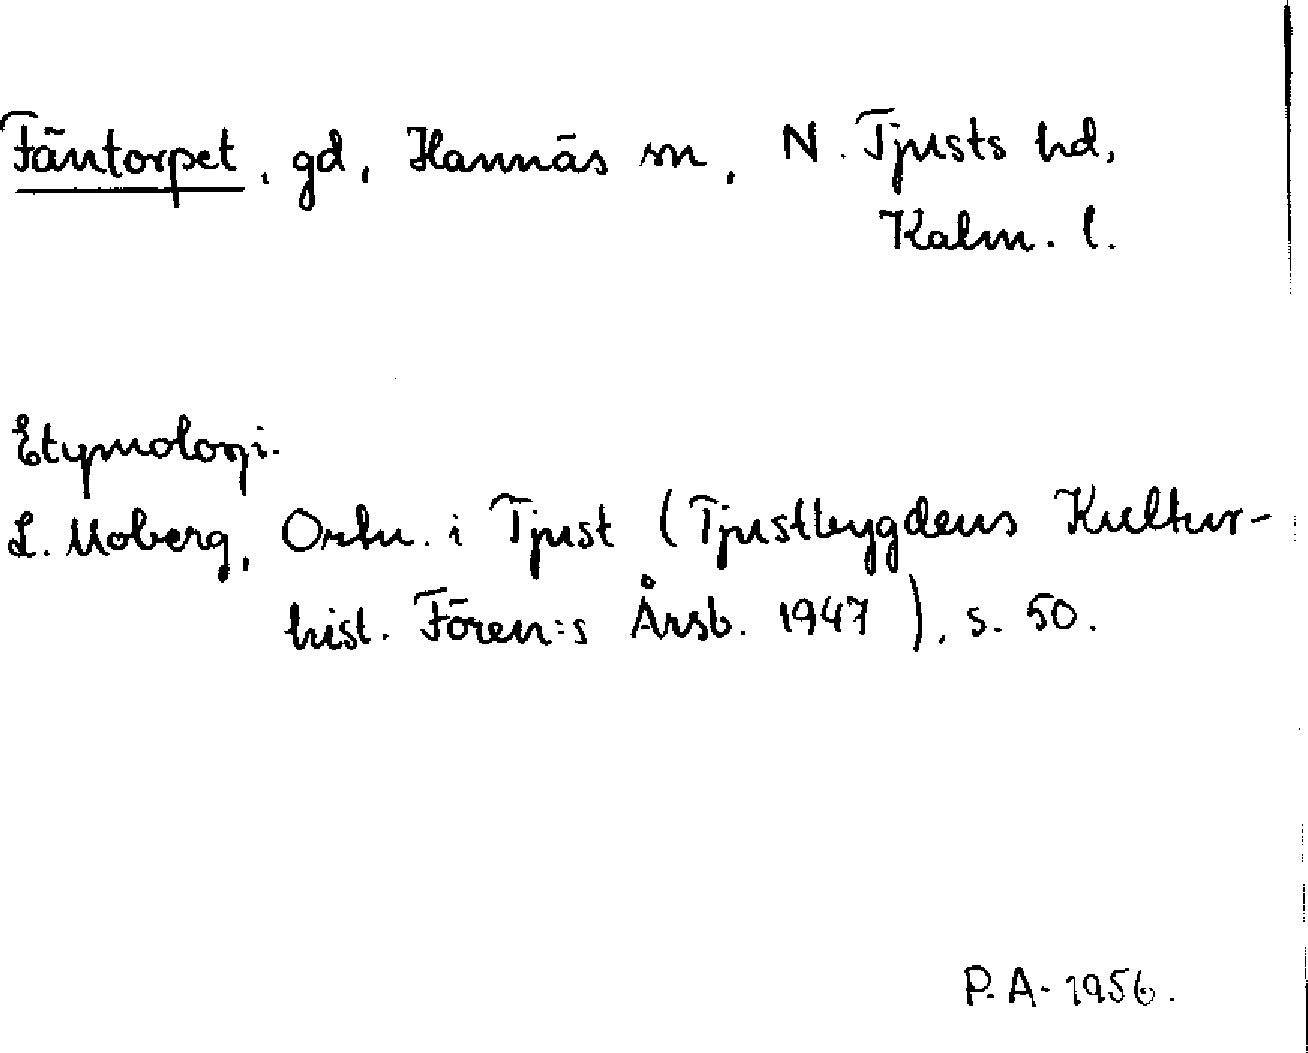 Fäntorpet, gd, Hannäs sn, N. Tjusts hd,
Kalm. l.
Etymologi.
L. Moberg, Ortn. i Tjust (Tjustbygdens Kultur-
hist. Fören:s Årsb. 1947), s. 50.
P. A. 1956.